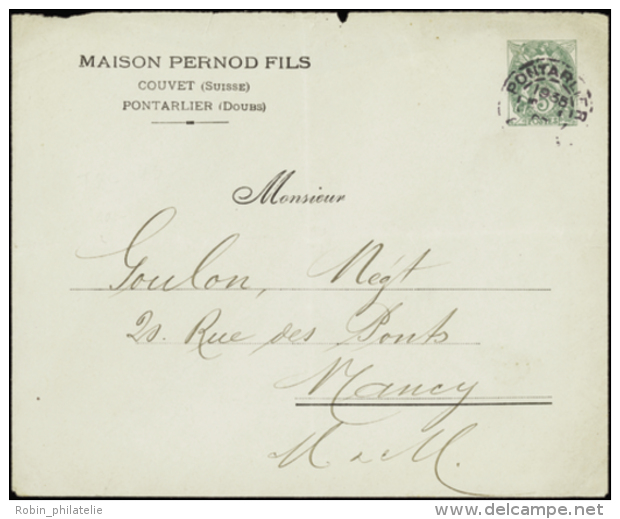 MAISON PERNOD FILS
COUVET (SUISSE)
PONTARLIER (DOUBS)
PONTARLIER
5
Monsieur
Goulon, Négt
20. Rue des Ponts
Nancy
M & M.
Robin_philatelie
delcampe.net